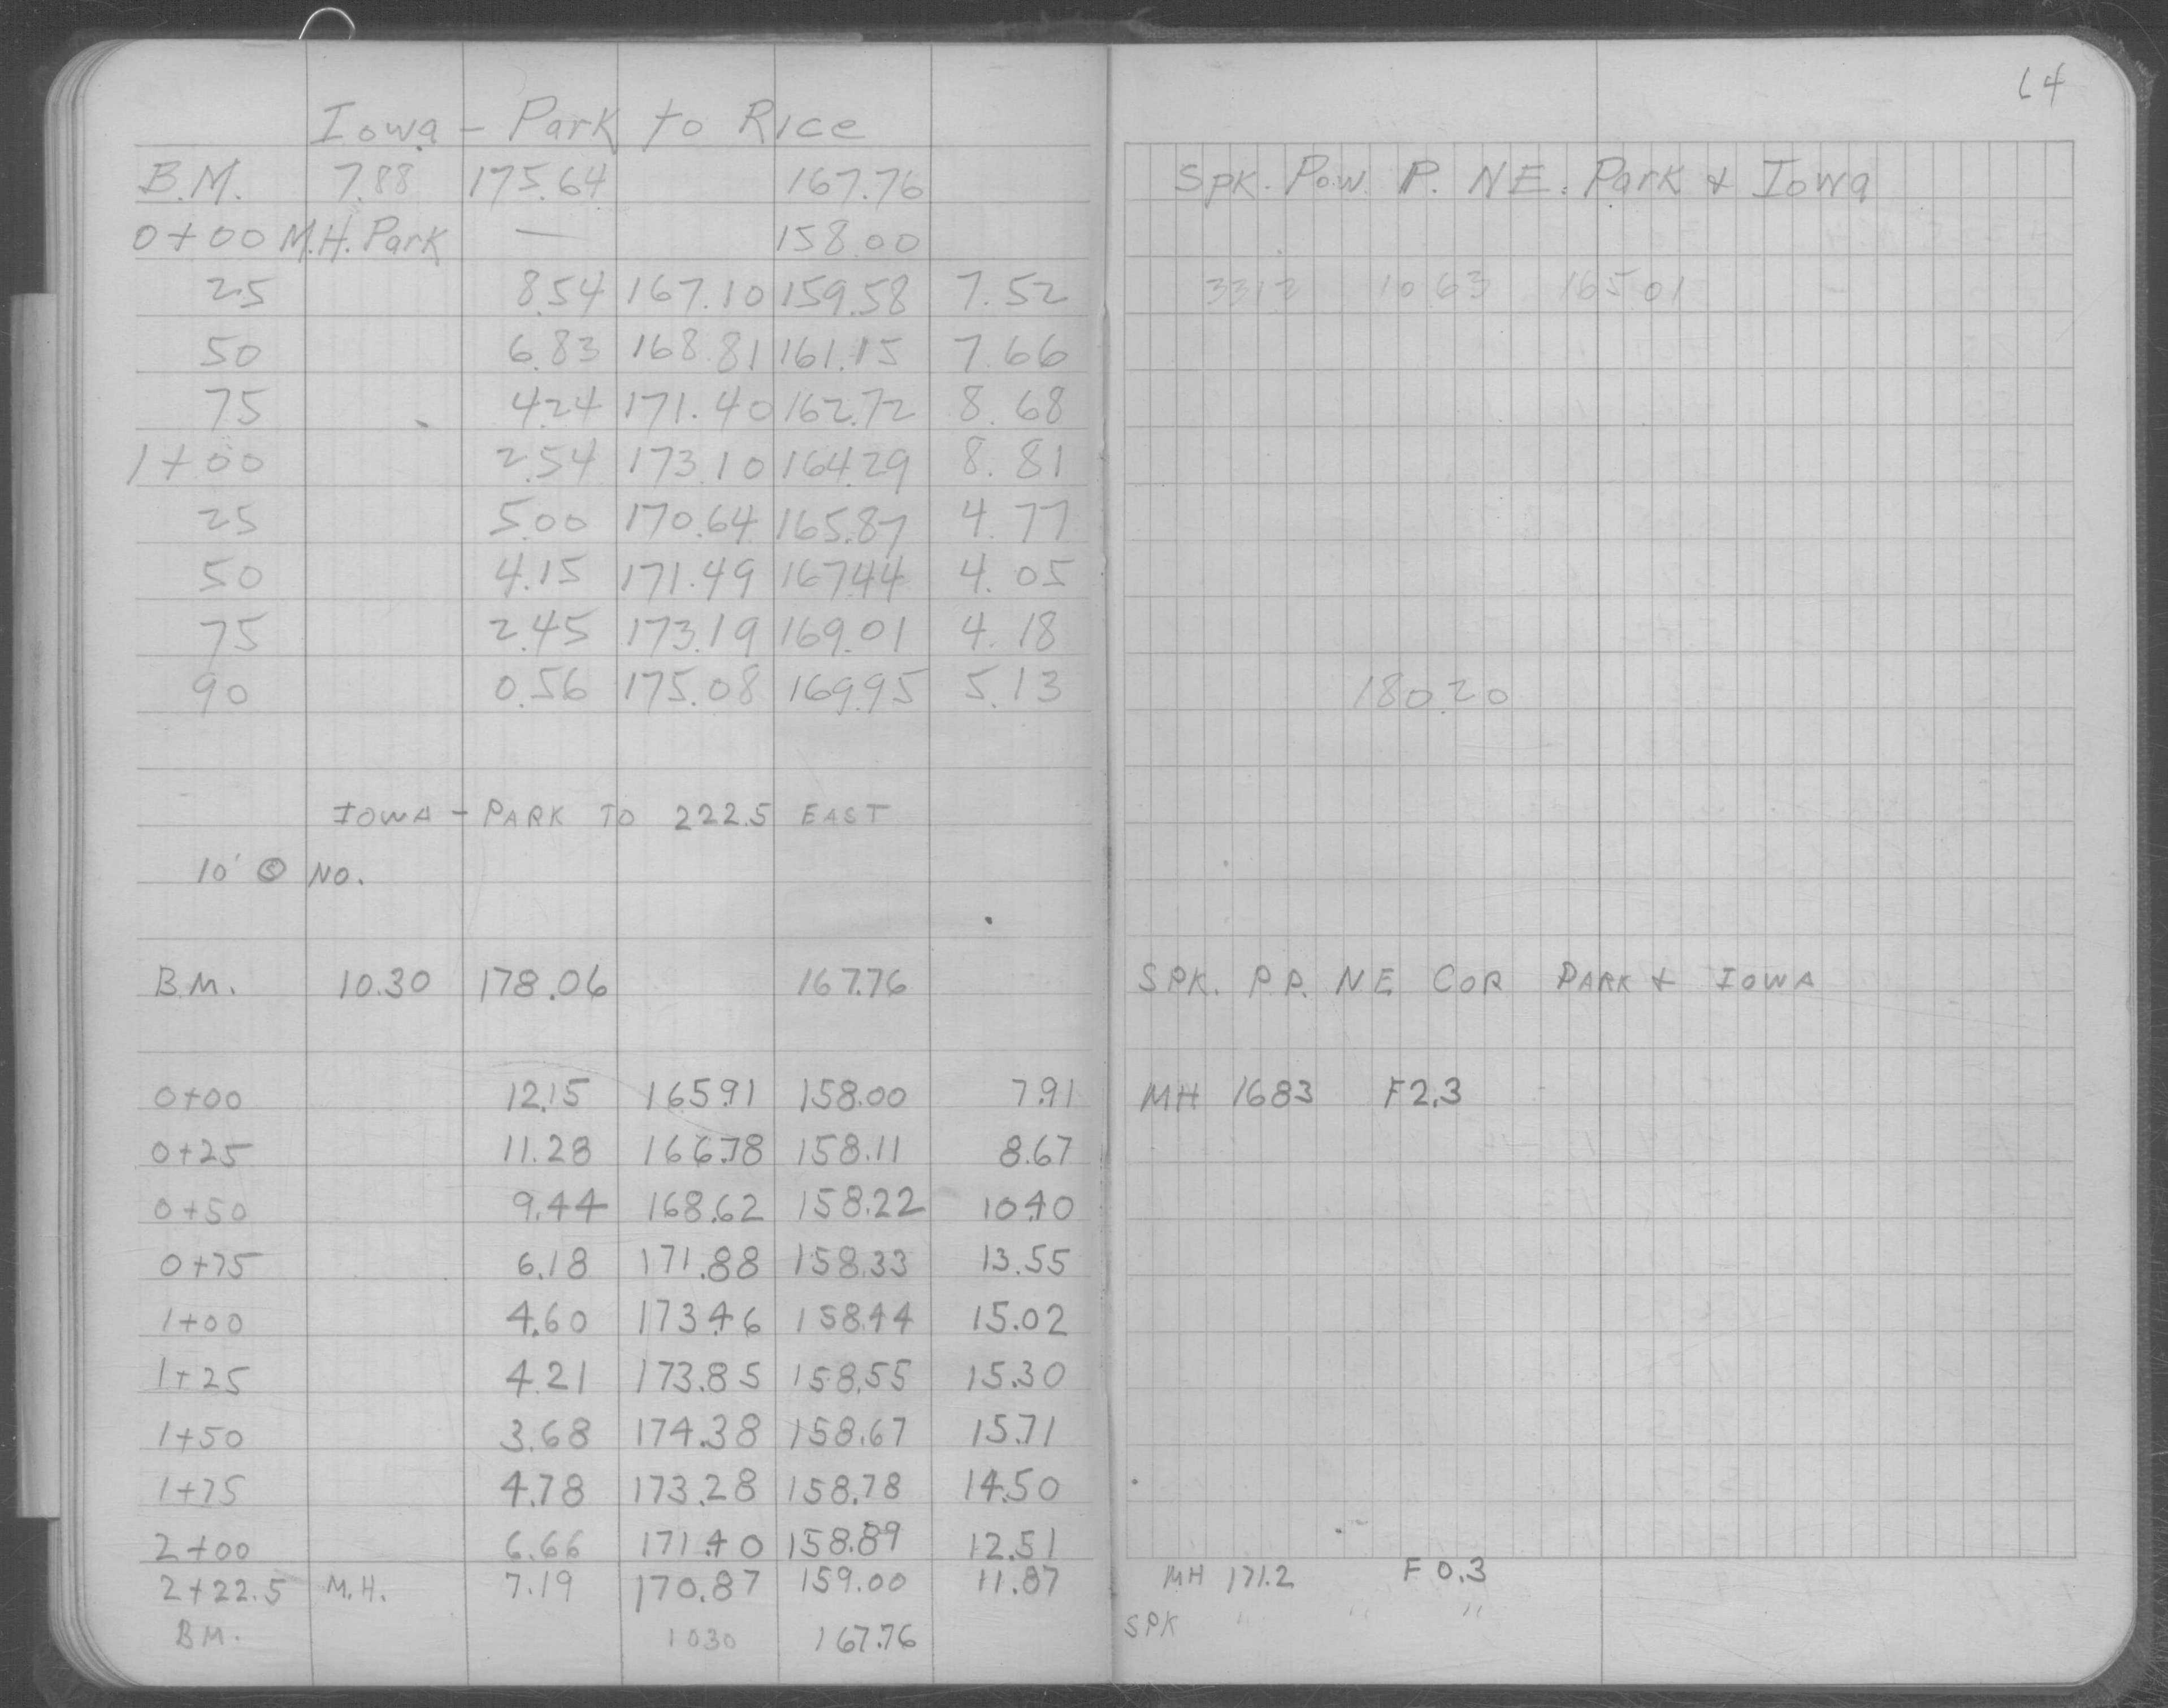 64
Iowa - Park to Rice
B.M. 7.88 175.64 167.76 Spk. Pow. P. NE. Park & Iowa
0+00 M.H. Park — 158.00
25 8.54 167.10 159.58 7.52 3312 10.63 165.01
50 6.83 168.81 161.15 7.66
75 4.24 171.40 162.72 8.68
1+00 2.54 173.10 164.29 8.81
25 5.00 170.64 165.87 4.77
50 4.15 171.49 167.44 4.05
75 2.45 173.19 169.01 4.18
90 0.56 175.08 169.95 5.13 180.20
IOWA - PARK TO 222.5 EAST
10' NO.
B.M. 10.30 178.06 167.76 SPK. P.P. NE COR PARK & IOWA
0+00 12.15 165.91 158.00 7.91 MH 168.3 F 2.3
0+25 11.28 166.78 158.11 8.67
0+50 9.44 168.62 158.22 10.40
0+75 6.18 171.88 158.33 13.55
1+00 4.60 173.46 158.44 15.02
1+25 4.21 173.85 158.55 15.30
1+50 3.68 174.38 158.67 15.71
1+75 4.78 173.28 158.78 14.50
2+00 6.66 171.40 158.89 12.51
2+22.5 M.H. 7.19 170.87 159.00 11.87 MH 171.2 F 0.3
BM. 10.30 167.76 SPK " " "